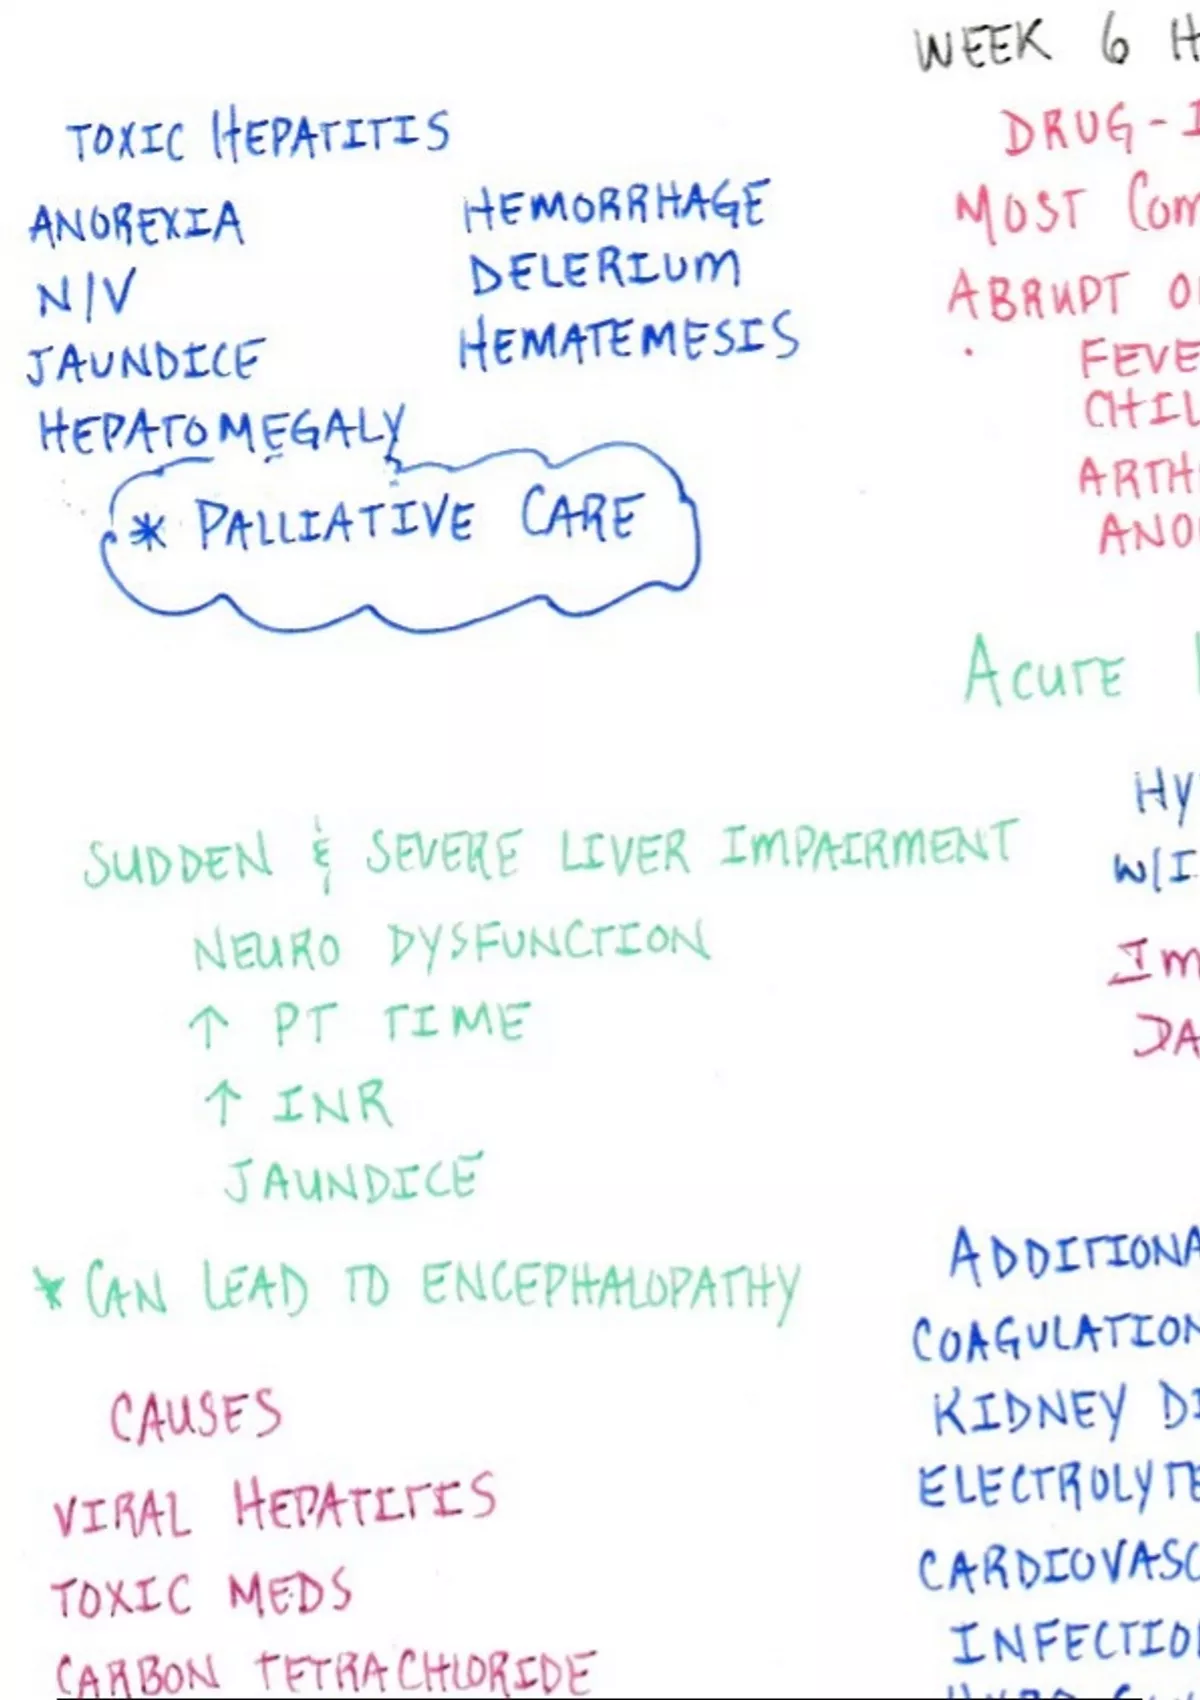 WEEK 6
TOXIC HEPATITIS
ANOREXIA
N/V
JAUNDICE
HEPATOMEGALY
HEMORRHAGE
DELERIUM
HEMATEMESIS
* PALLIATIVE CARE
DRUG-
MOST
ABRUPT
ACUTE
SUDDEN & SEVERE LIVER IMPAIRMENT
NEURO DYSFUNCTION
↑ PT TIME
↑ INR
JAUNDICE
* CAN LEAD TO ENCEPHALOPATHY
CAUSES
VIRAL HEPATITIS
TOXIC MEDS
CARBON TETRACHLORIDE
W/I
ADDITIONA
COAGULATION
KIDNEY
ELECTROLYTE
CARDIOVASC
INFECTIO